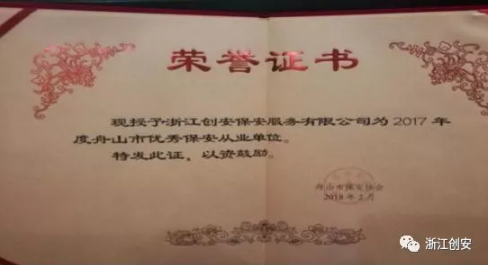 荣誉证书
现授予浙江创安保安服务有限公司为2017年
度舟山市优秀保安从业单位。
特发此证，以资鼓励。
舟山市保安协会
2018年2月
浙江创安